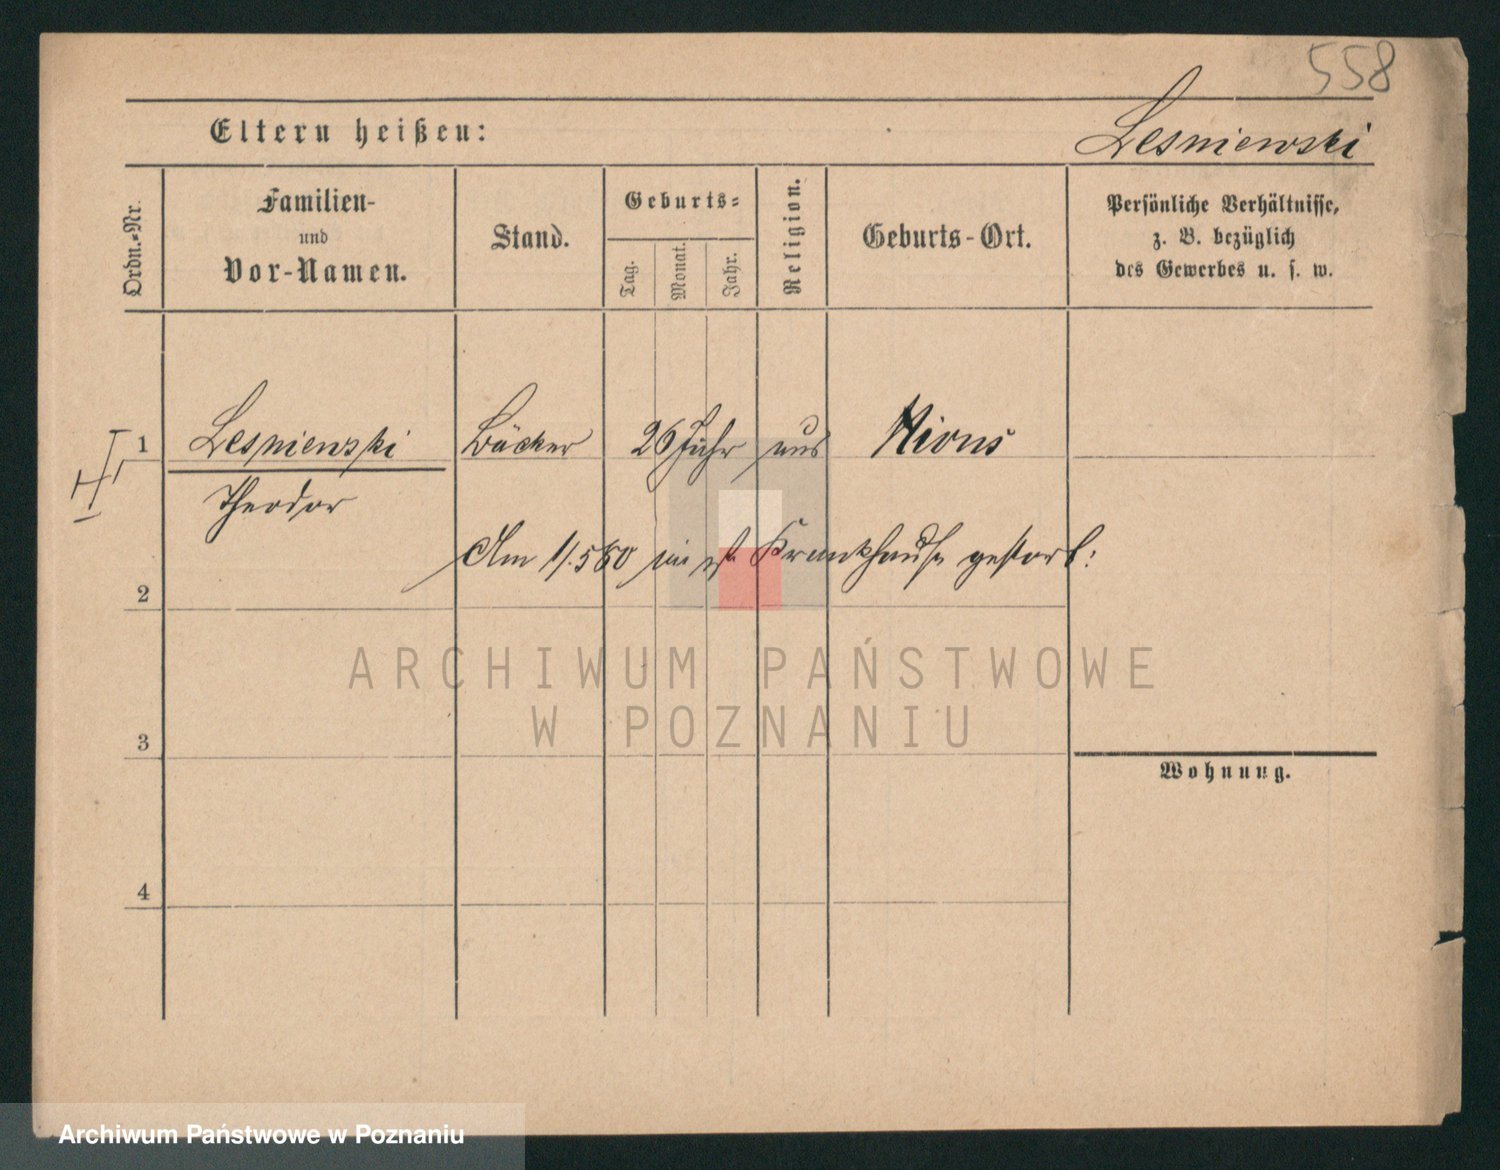 558
Eltern heißen:
Lesniewski
Ordn.-Nr.
Familien-
und
Vor-Namen.
Stand.
Geburts-
Tag.
Monat.
Jahr.
Religion.
Geburts-Ort.
Persönliche Verhältnisse,
z. B. bezüglich
des Gewerbes u. s. w.
1 Lesniewski Bäcker 26 Jahr aus Xions
Theodor
Am 1/5 60 im Krankhause gestorb:
2
3
4
Wohnung.
ARCHIWUM PAŃSTWOWE
W POZNANIU
Archiwum Państwowe w Poznaniu